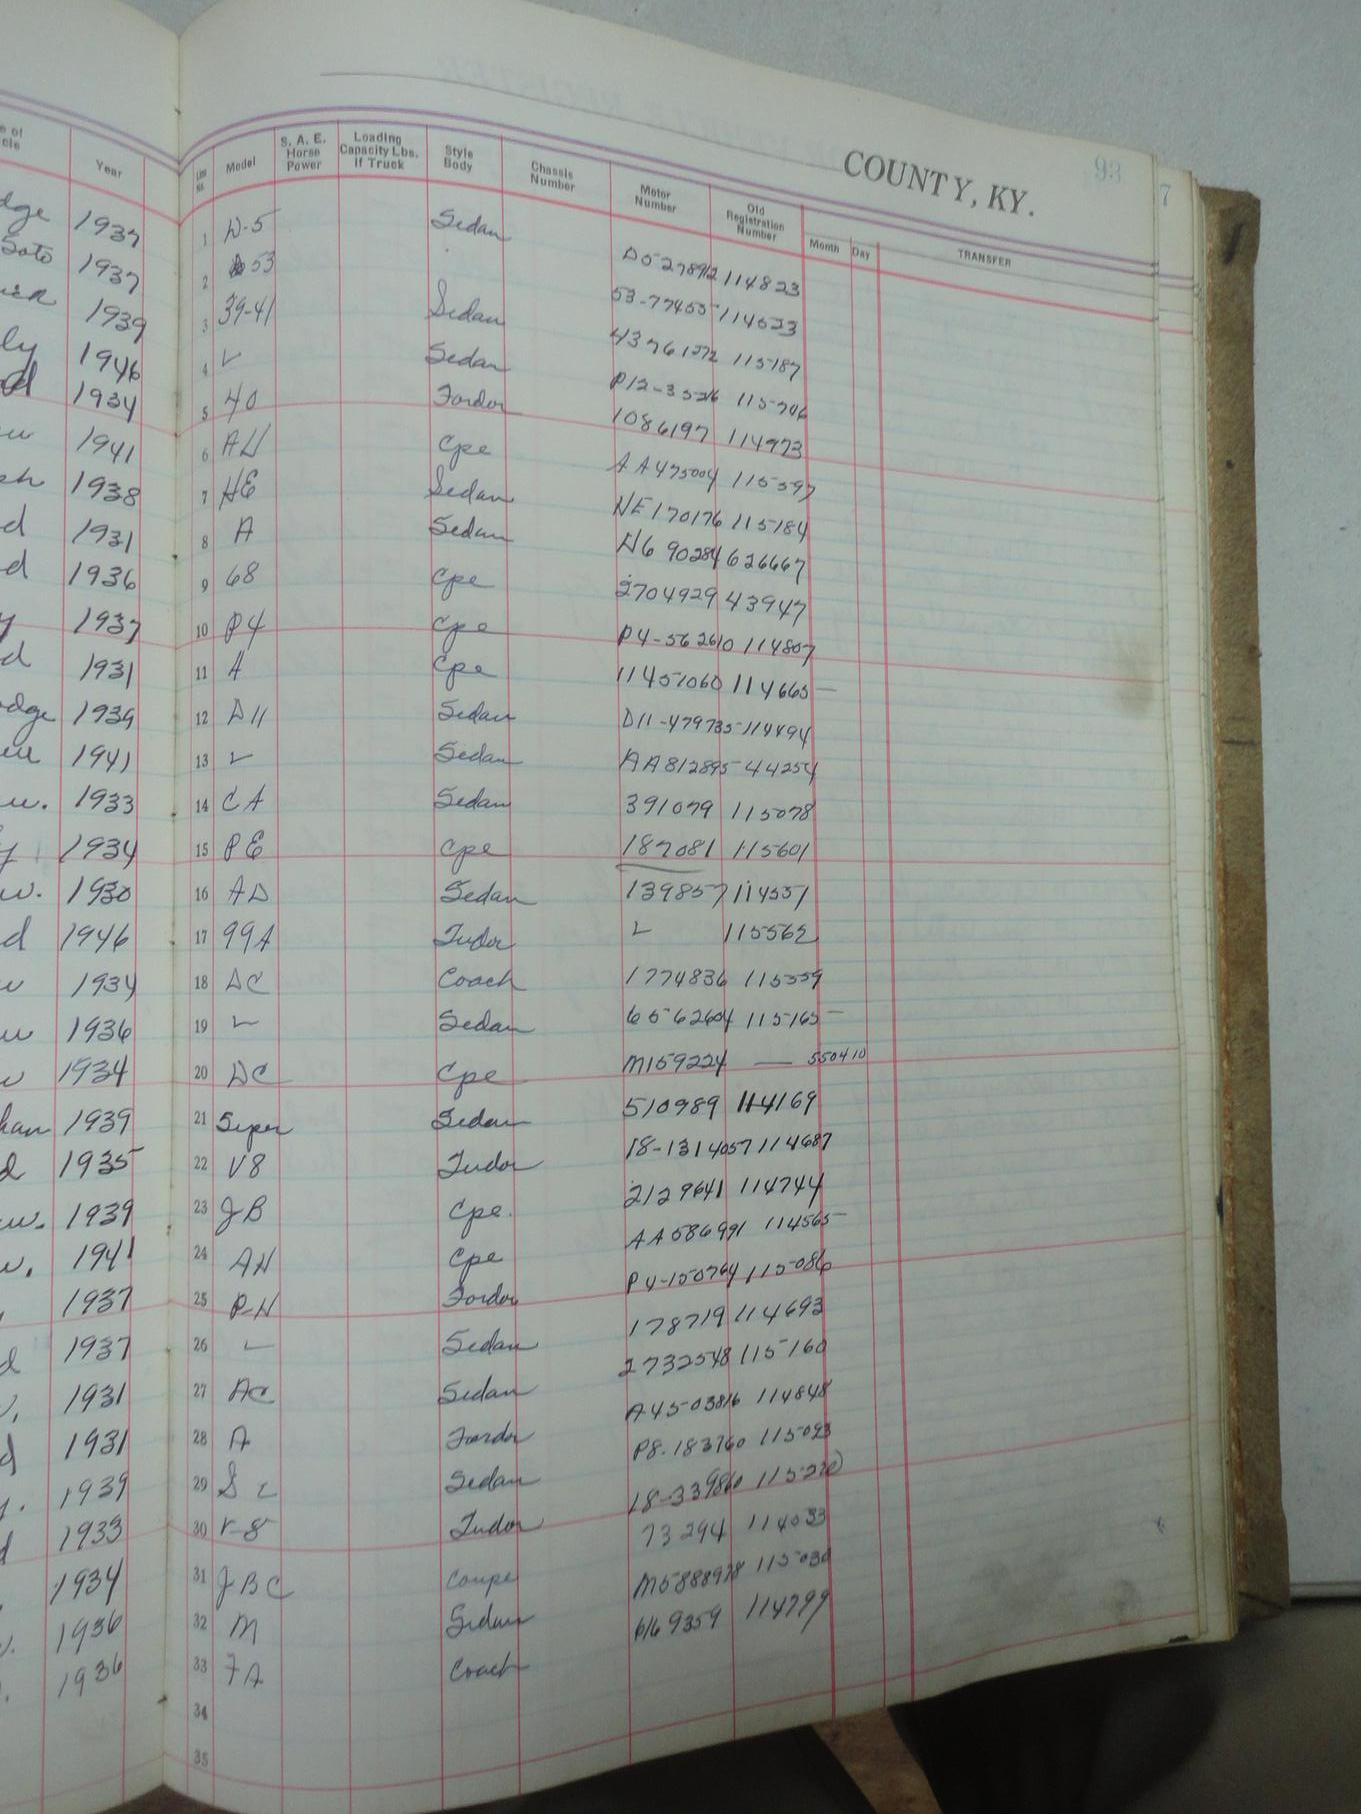 COUNTY, KY.
93
7
Year
Line No.
Model
S. A. E. Horse Power
Loading Capacity Lbs. If Truck
Style Body
Chassis Number
Motor Number
Old Registration Number
Month
Day
TRANSFER
dge 1937 1 D-5 Sedan D0-278912 114823
Soto 1937 2 53 53-77455 114523
1939 3 39-41 Sedan 43761272 115187
ly 1946 4 ✓ Sedan P12-3526 115746
d 1934 5 40 Fordor 1086197 114973
1941 6 AH Cpe AA475004 115597
sh 1938 7 HE Sedan HE170176 115184
d 1931 8 A Sedan H6 90284 626667
d 1936 9 68 Cpe 2704929 43947
y 1937 10 P4 Cpe P4-562610 114807
d 1931 11 A Cpe 11451060 114665
odge 1939 12 D11 Sedan D11-479735 114494
1941 13 ✓ Sedan AA812895 44254
w. 1933 14 CA Sedan 391079 115078
y 1934 15 PE Cpe 187081 115601
w. 1930 16 AD Sedan 139857 114551
d 1946 17 99A Tudor ✓ 115562
w 1934 18 DC Coach 1774836 115559
w 1936 19 ✓ Sedan 6562604 115165
w 1934 20 DC Cpe M159224 — 550410
ham 1939 21 Super Sedan 510989 114169
d 1935 22 V8 Tudor 18-1314057 114687
w. 1939 23 JB Cpe. 2129641 114744
w. 1941 24 AH Cpe AA586991 114565
1937 25 P-H Fordor P4-150764 115086
d 1937 26 ✓ Sedan 178719 114693
1931 27 AC Sedan 2732548 115160
d 1931 28 A Fordor A4503816 114848
y. 1939 29 Sedan P8-183760 115093
d 1933 30 V-8 Tudor 18-339860
1934 31 JBC Coupe 73294 114033
1936 32 M Sedan M5888978 115030
1936 33 FA Coach 6169359 114799
34
35